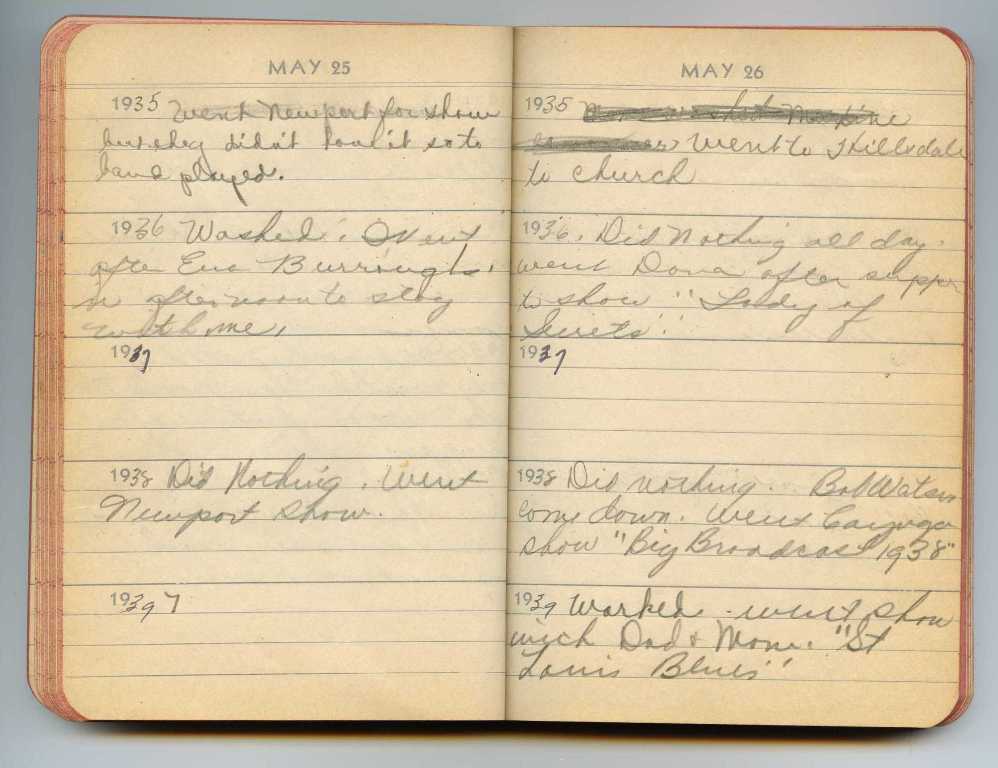 MAY 25
1935 Went Newport for show
but they didn't have it so to
played.
1936 Washed. Went
after Eva Burrough
in afternoon to stay
with me.
1937
1938 Did Nothing. Went
Newport show.
1939
MAY 26
1935
went to Hillsdale
to church
1936. Did Nothing all day.
went Dana after supper
to show "Lady of
Secrets".
1937
1938 Did nothing. Bob Watson
come down. Went Cayuga
show "Big Broadcast 1938"
1939 Worked. went show
with Dad & Mom. "St
Louis Blues"